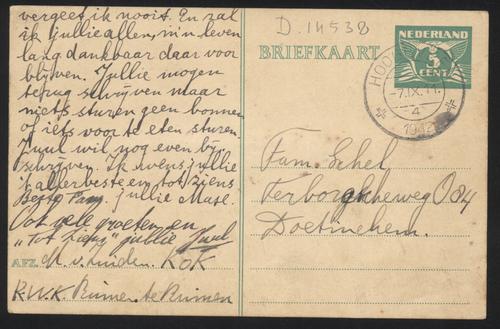 vergeet ik nooit. En zal
ik jullie allen, m'n leven
lang dankbaar daar voor
blijven. Jullie mogen
terug schrijven maar
niets sturen geen bonnen
of iets voor te eten sturen.
Juul wil nog even bij
schrijven. Ik wens jullie
't allerbeste en tot ziens
Beste Fam. jullie Max.
Ook vele groeten en
"Tot ziens" jullie Juul
AFZ. M. v. KOK
R.W.K. Ruinen te Ruinen
D.14538
NEDERLAND
5
CENT
BRIEFKAART
-7.IX.11.
4
1942
Fam.
Terborgscheweg 084
Doetinchem.